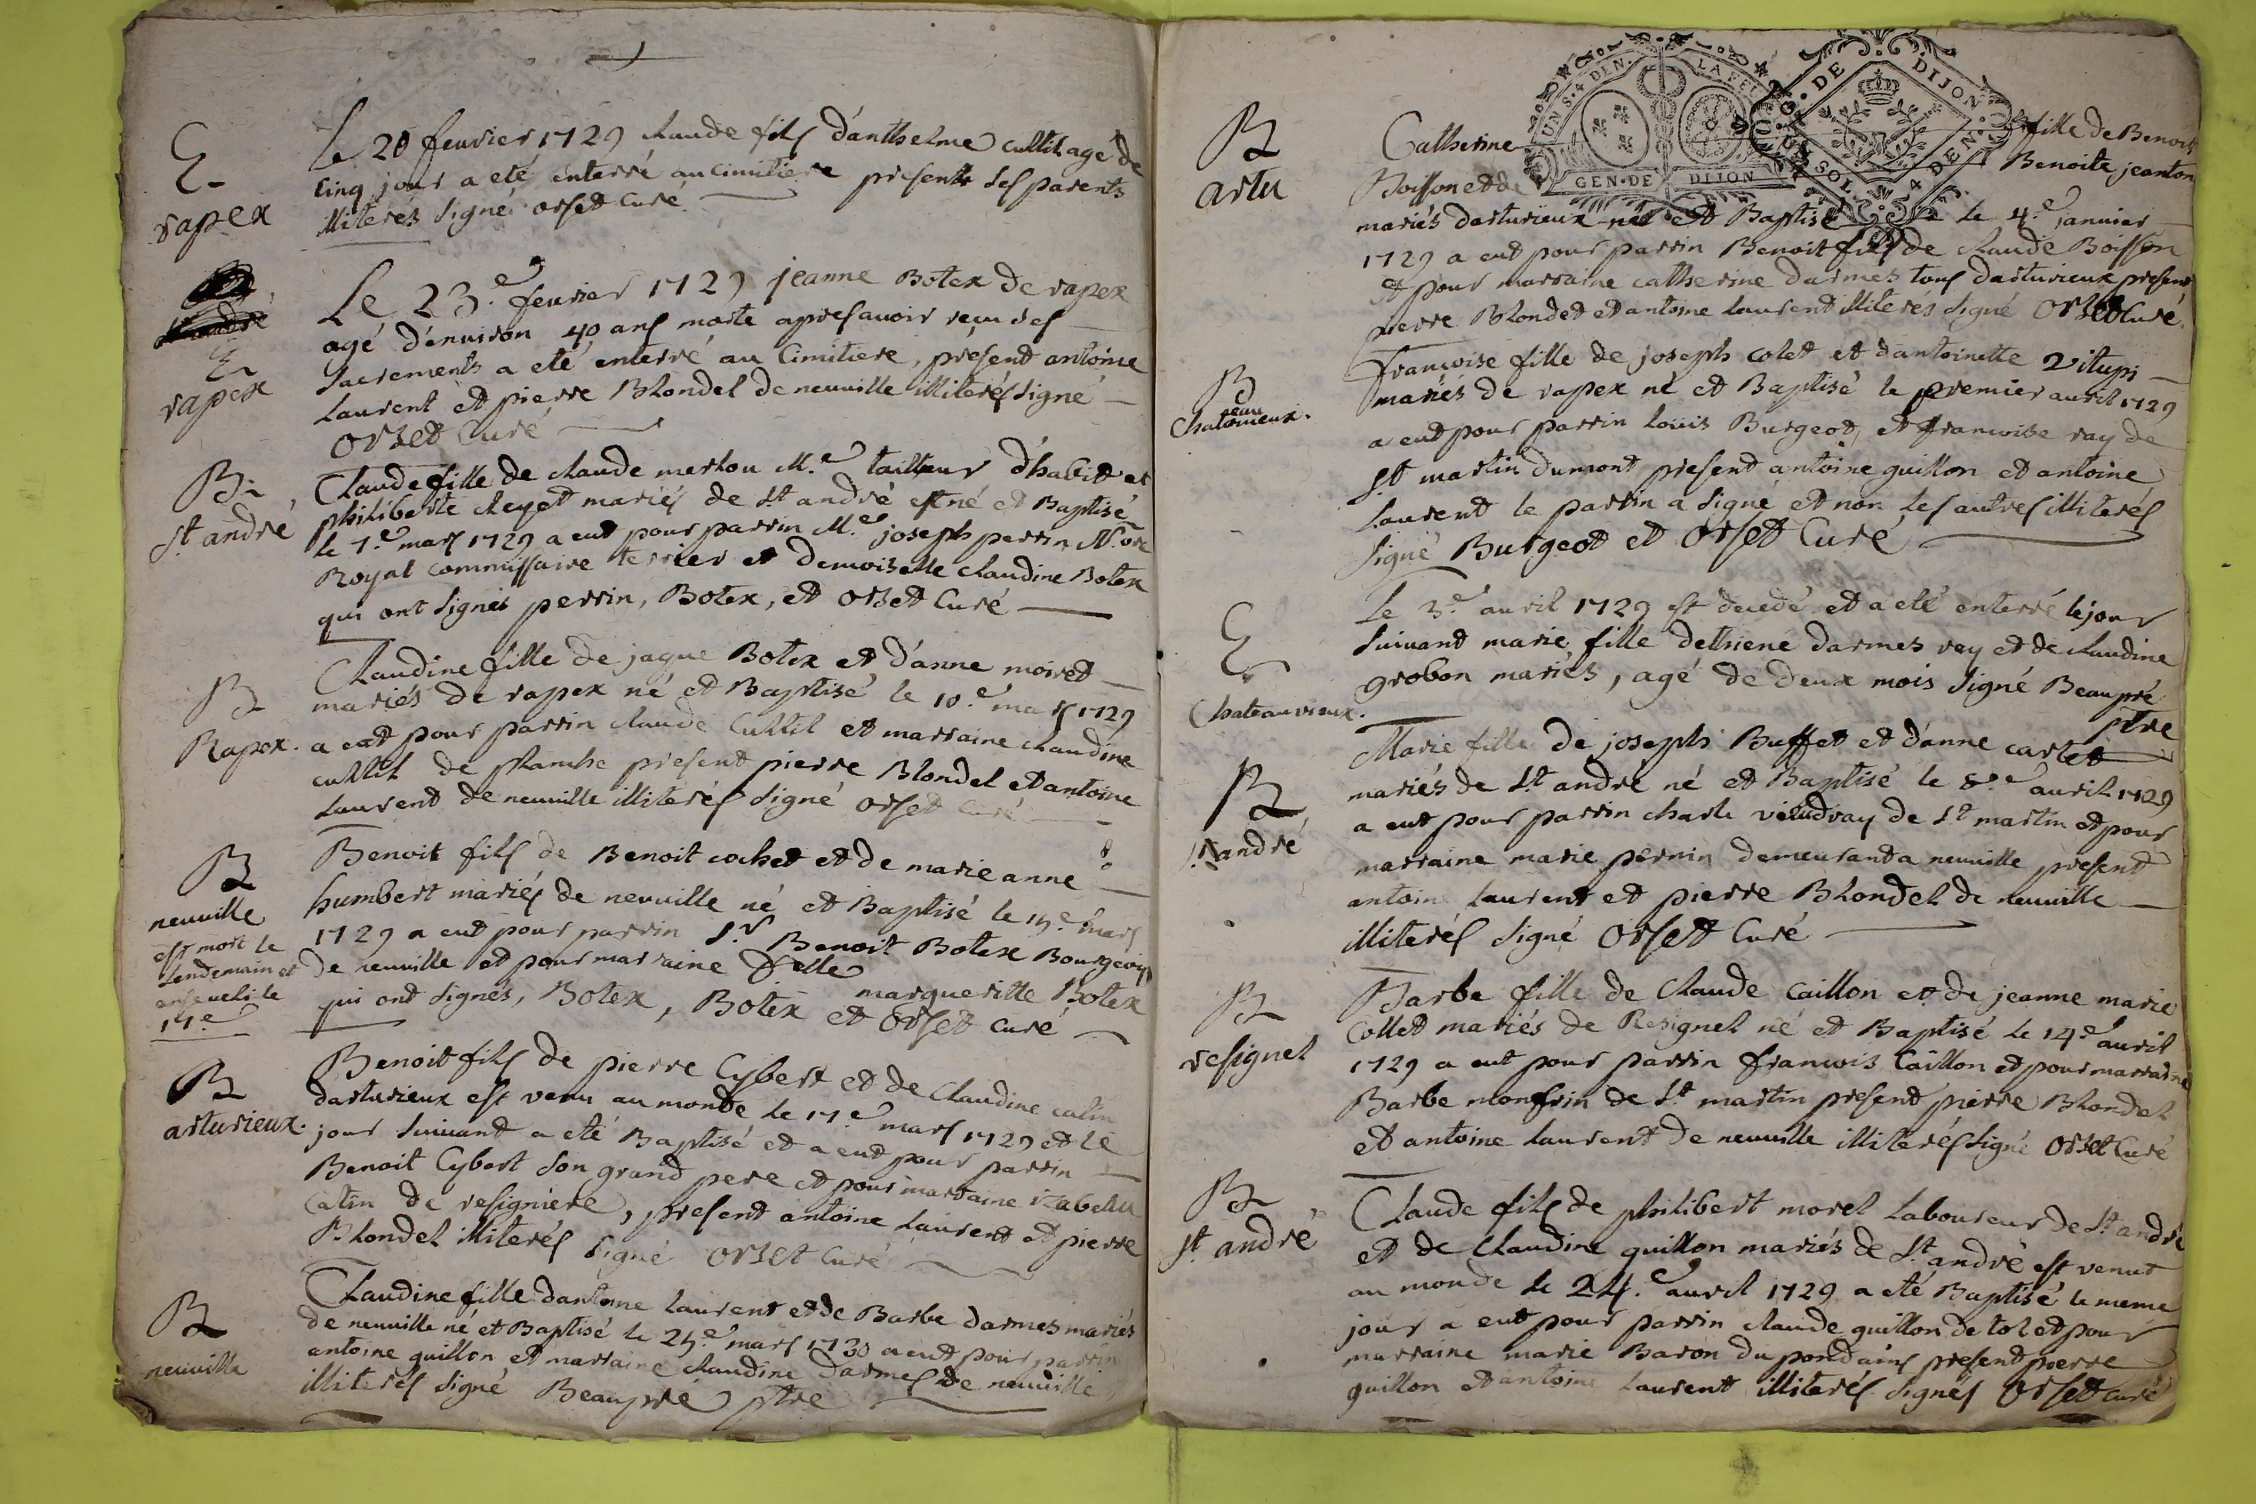 E.
rapex
Le 20 feurier 1729 claude fils d'anthelme cultil agé de
cinq jour a eté enterré au cimitiere presents ses parents
illiterés signé orset Curé
E
rapex
Le 23.e feurier 1729 jeanne Botex de rapex
agé d'enuiron 40 ans morte apres auoir reçu ses
sacrements a eté enterré au Cimitiere, present antoine
Laurent et pierre Blondel de neuuille illiterés signé
orset Curé
B
St. andré
Claude fille de claude merlou M.e tailleur d'habit et
philiberte cleyet mariés de St andré est né et Baptisé
le 7.e mars 1729 a eut pour parrin M.e joseph perrin N.ore
Royal commissaire terrier et demoiselle claudine Botex
qui ont signés perrin, Botex, et orset Curé
B
Rapex.
Claudine fille de jaque Botex et d'anne moiret
mariés de rapex né et Baptisé le 10.e mars 1729
a eut pour parrin claude Cultil et marraine claudine
cultil de planche present pierre Blondel et antoine
Laurent de neuuille illiterés signé orset Curé
B
neuuille
est mort le
lendemain et
enseueli le
17.e
Benoit fils de Benoit cochet et de marie anne
humbert mariés de neuuille né et Baptisé le 15.e mars
1729 a eut pour parrin S.r Benoit Botex Bourgeois
de neuuille et pour marraine D.elle margueritte Botex
qui ont signés, Botex, Botex et orset curé
B
arturieux.
Benoit fils de pierre Cybert et de Claudine catin
darturieux est venu au monde le 17.e mars 1729 et le
jour suiuant a eté Baptisé et a eut pour parrin
Benoit Cybert son grand pere et pour marraine izabelle
Catin de resigniere, present antoine Laurent et pierre
Blondel illiterés signé orset Curé
B
neuuille
Claudine fille dantoine Laurent et de Barbe darmes mariés
de neuuille né et Baptisé le 25.e mars 1730 a eut pour parrin
antoine guillon et marraine claudine darmes de neuuille
illiterés signé Beaupré ptre
B
artu
UN S. 4 DEN. LA FEU
GEN. DE DIJON
G. DE DIJON
UN SOL 4 DEN.
Catherine fille de Benoit
Boisson et de Benoite jeanton
mariés darturieux né et Baptisé le 4.e januier
1729 a eut pour parrin Benoit fils de claude Boisson
et pour marraine catherine darmes tous darturieux present
pierre Blondel et antoine Laurent illiterés signé Orset Curé.
B
Chateauvieux.
francoise fille de joseph colet et d'antoinette
mariés de rapex né et Baptisé le premier auril 1729
a eut pour parrin Louis Burgeot, et francoise ray de
St martin dumont present antoine guillon et antoine
Laurent le parrin a signé et non les autres illiterés
signé Burgeot et Orset Curé
E
Chateauvieux.
Le 3.e auril 1729 est decedé et a eté enterré le jour
suiuant marie fille dethiene darmes rey et de claudine
grobon mariés, agé de deux mois signé Beaupré
ptre
B
St. andré
Marie fille de joseph Buffet et d'anne carlet
mariés de St andre né et Baptisé le 8.e auril 1729
a eut pour parrin charle de St martin et pour
marraine marie pernin demeurant a neuuille present
antoine Laurent et pierre Blondel de neuuille
illiterés signé Orset Curé
B
resignel
Barbe fille de Claude Caillon et de jeanne marie
Collet mariés de Resignel né et Baptisé le 14.e auril
1729 a eut pour parrin francois Caillon et pour marraine
Barbe monfrin de St martin present pierre Blondel
et antoine Laurent de neuuille illiterés signé orset Curé
B
St. andré
Claude fils de philibert morel Laboureur de St andré
et de Claudine guillon mariés de St andré est venut
au monde le 24.e auril 1729 a eté Baptisé le meme
jour a eut pour parrin claude guillon de tol et pour
marraine marie Baron du pondains present pierre
guillon et antoine Laurent illiterés signés Orset curé